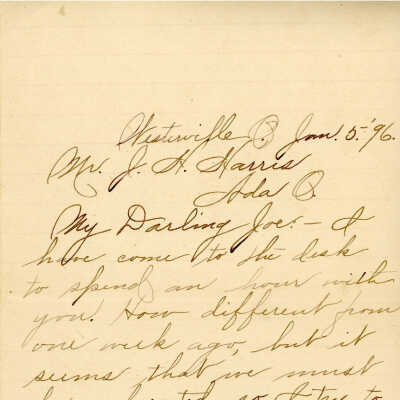 Westerville O. Jan. 5. '96.
Mr. J. H. Harris
Ada O.
My Darling Joe: – I
have come to the desk
to spend an hour with
you. How different from
one week ago, but it
seems that we must
to